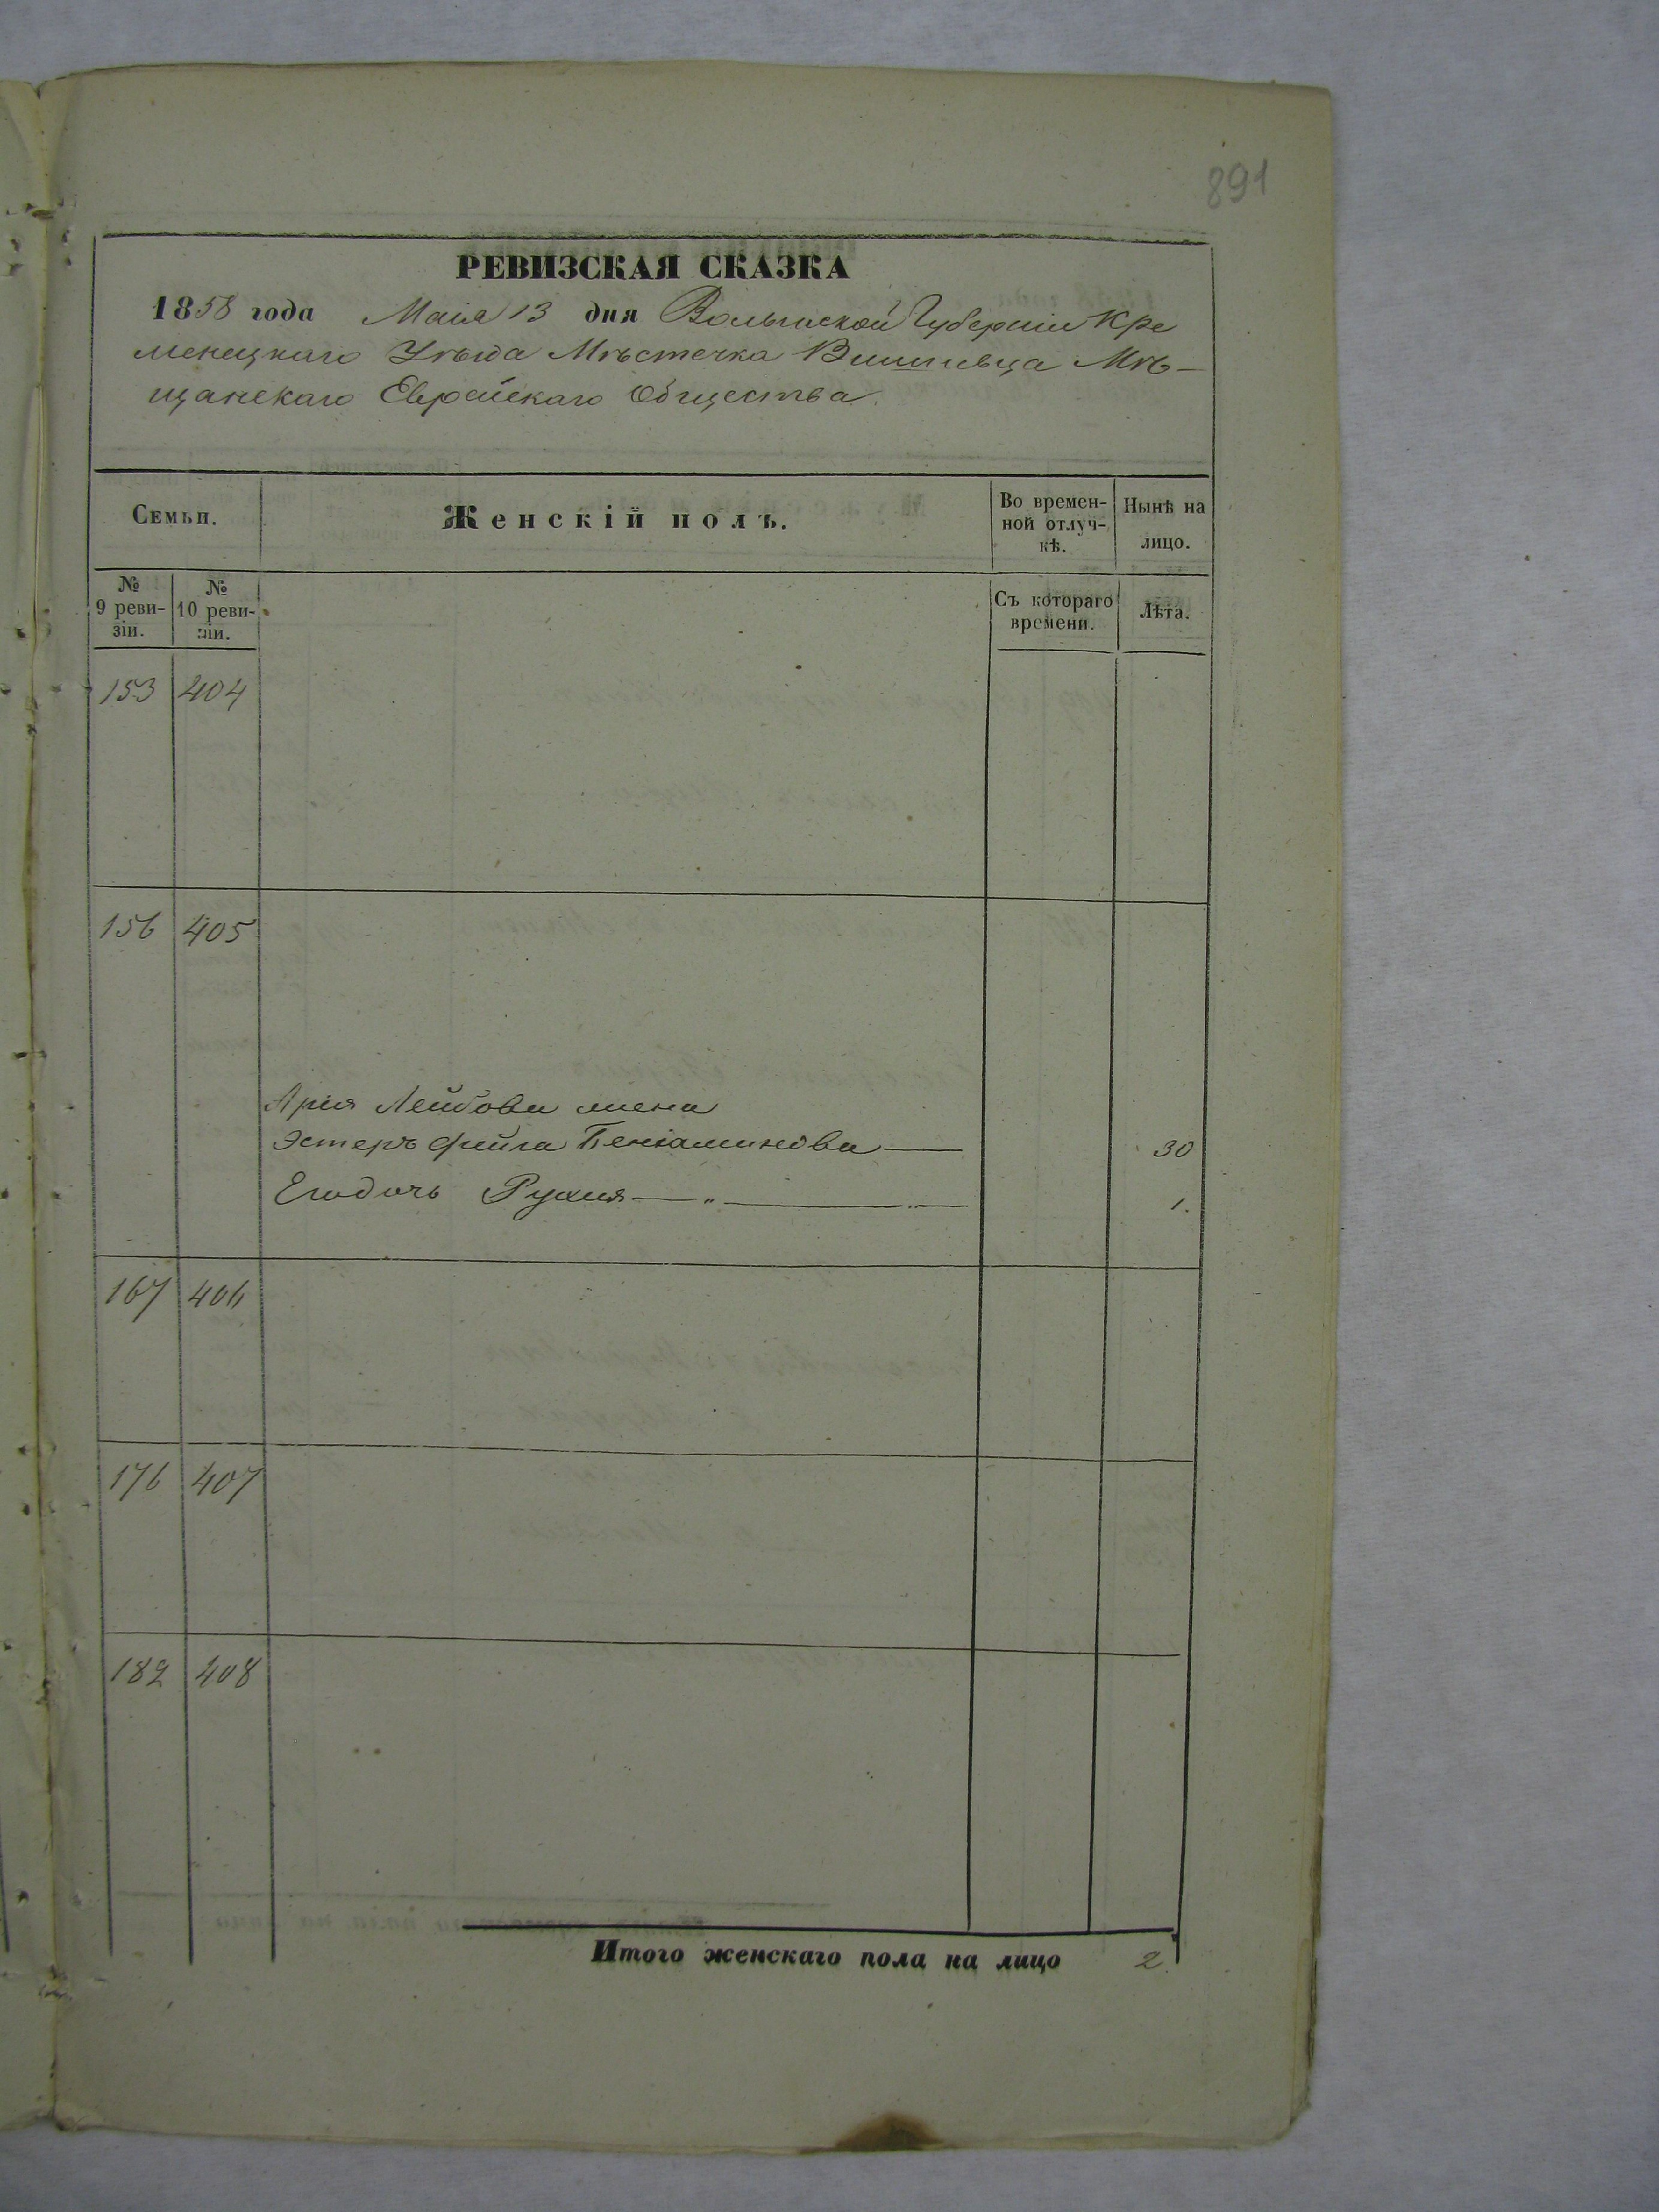 891
РЕВИЗСКАЯ СКАЗКА
1858 года Маія 13 дня Волынской Губерніи Кре
менецкаго Уѣзда Мѣстечка Вишневца Мѣ-
щанскаго Еврейскаго Общества.
Семьи. Женскій полъ. Во времен-
ной отлуч-
кѣ. Нынѣ на
лицо.
№
9 реви-
зіи. №
10 реви-
зіи. Съ котораго
времени. Лѣта.
153 404
156 405
Арія Лейбова жена
Эстеръ Фейга Беніаминова — 30
Егодочь Рухля — „ — 1.
167 406
176 407
182 408
Итого женскаго пола на лицо 2.